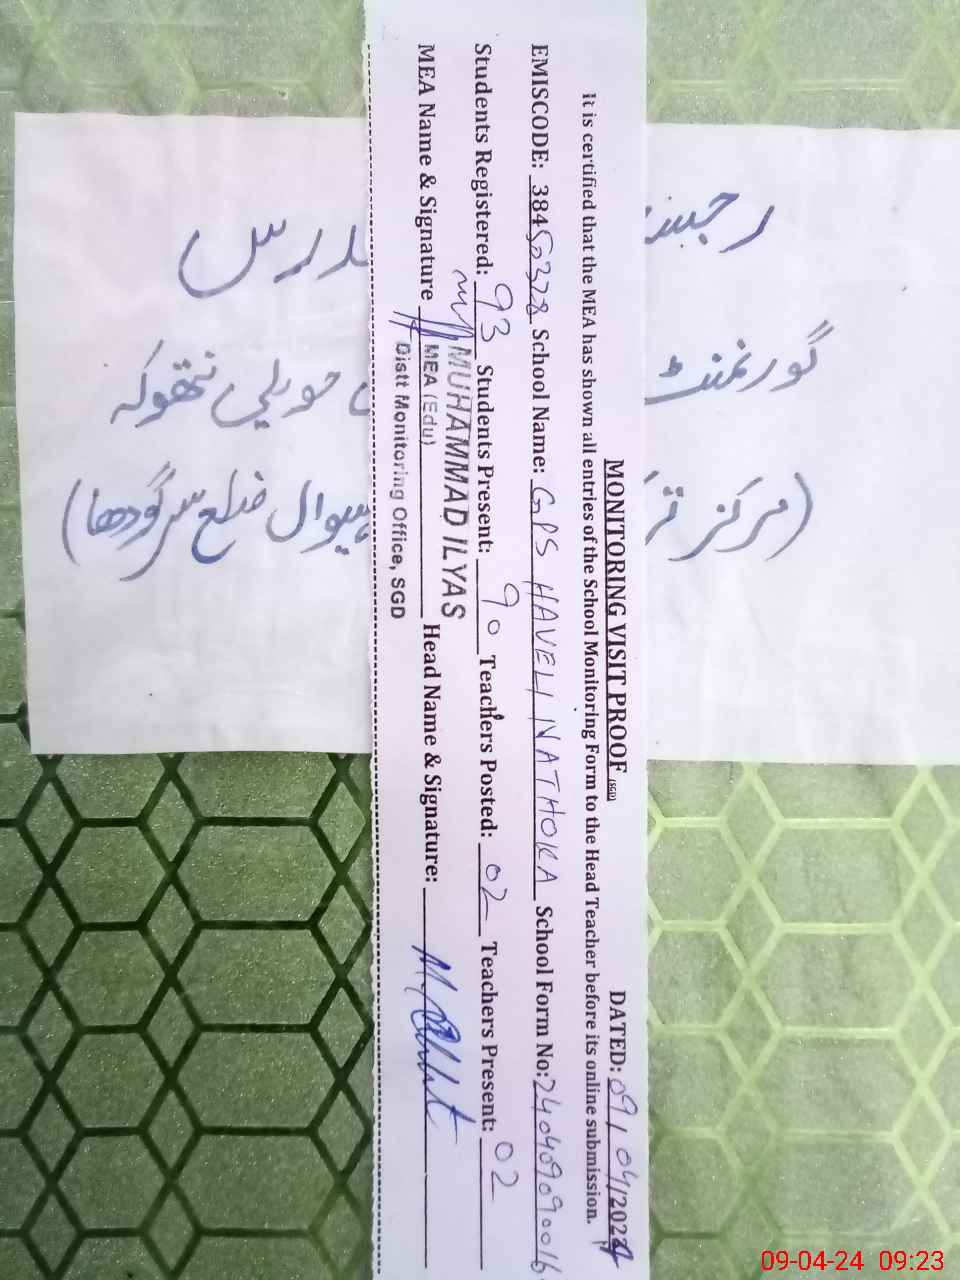 رجسٹ درس
گورنمنٹ حویلی نتھوکہ
(مرکز ضلع سرگودھا)
MONITORING VISIT PROOF (SGD) DATED: 09/04/2024
It is certified that the MEA has shown all entries of the School Monitoring Form to the Head Teacher before its online submission.
EMISCODE: 38450328 School Name: GPS HAVELI NATHOKA School Form No: 240409090016
Students Registered: 93 Students Present: 90 Teachers Posted: 02 Teachers Present: 02
MEA Name & Signature Head Name & Signature:
MUHAMMAD ILYAS
MEA (Edu)
Distt Monitoring Office, SGD
09-04-24 09:23